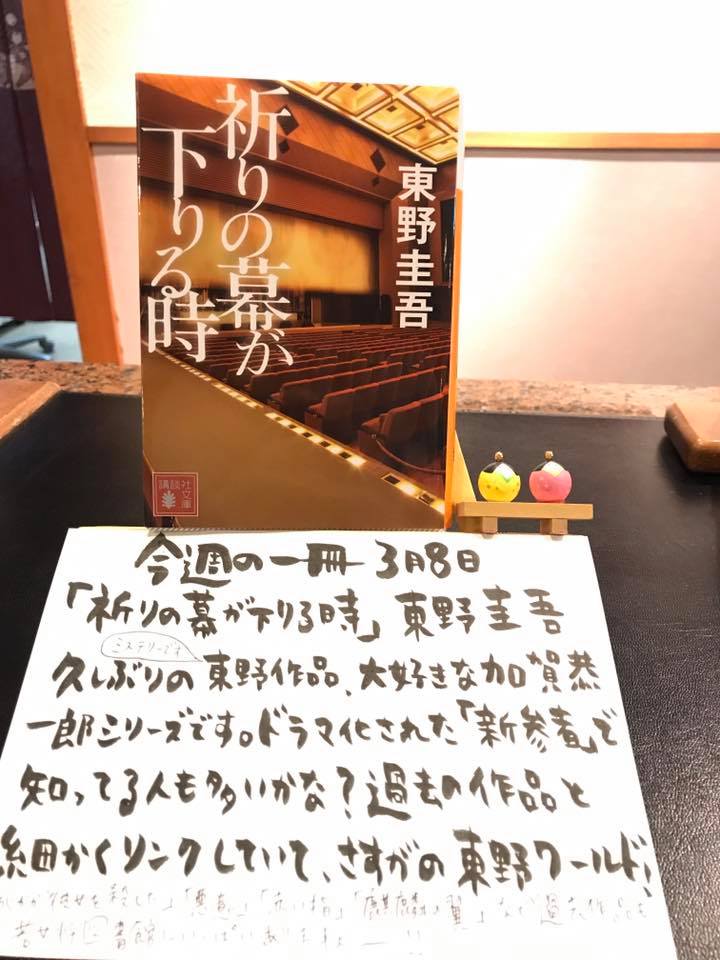 祈りの幕が
下りる時
東野圭吾
講談社文庫
今週の一冊 3月8日
「祈りの幕が下りる時」東野圭吾
ミステリーです
久しぶりの東野作品、大好きな加賀恭
一郎シリーズです。ドラマ化された「新参者」で
知ってる人も多いかな?過去の作品と
細かくリンクしていて、さすがの東野ワールド!
彼女を殺した」「悪意」「赤い指」「麒麟の翼」など過去作品も
図書館にいっぱいありますよー!!